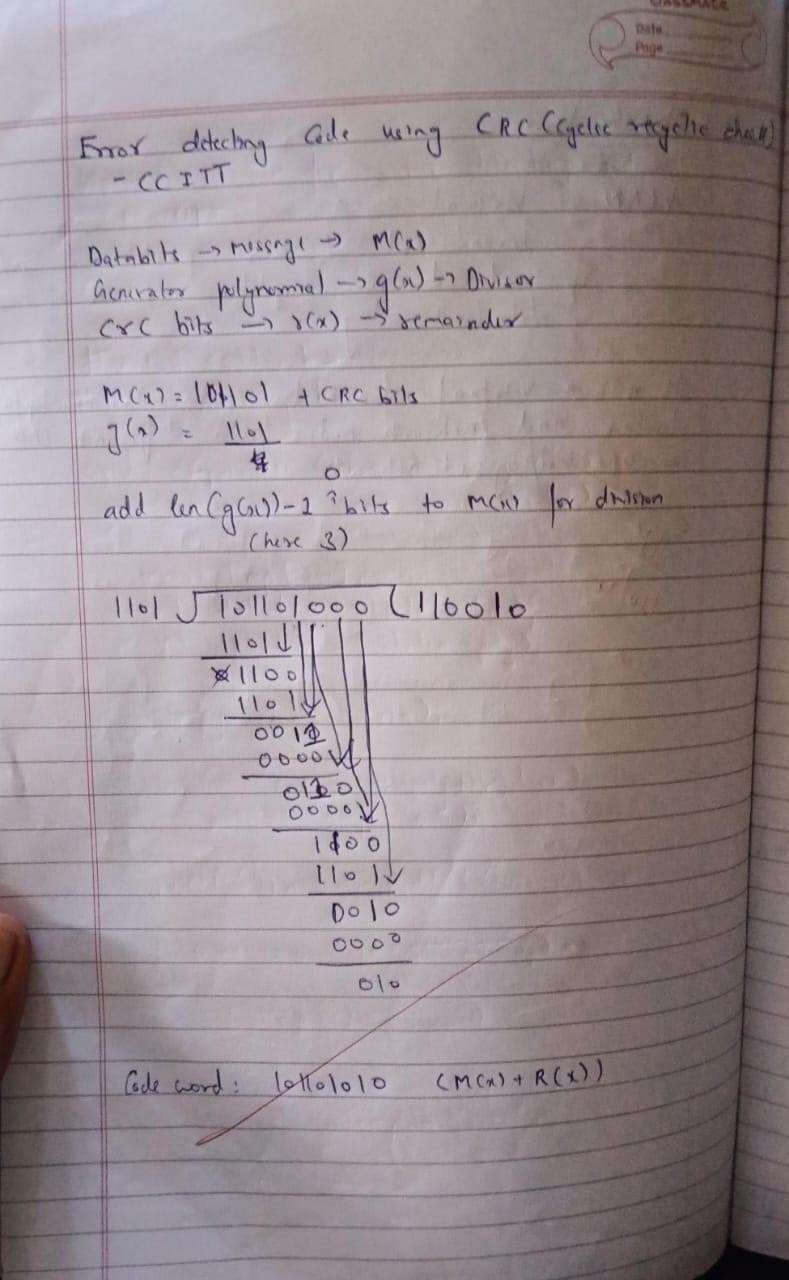 classmate
Date
Page
Error detecting Code using CRC (Cyclic recyclic check)
- CCITT
Databits → message → M(x)
Generator polynomial → g(x) → Divisor
CRC bits → r(x) → remainder
M(x) = 101101 + CRC bits
g(x) = 1101
4
0
add len(g(x))-1 bits to M(x) for division
(here 3)
1101 101101000 (110010
1101
1100
1101
0011
0000
0110
0000
1100
1101
0010
0000
010
Code word: 101101010 (M(x) + R(x))